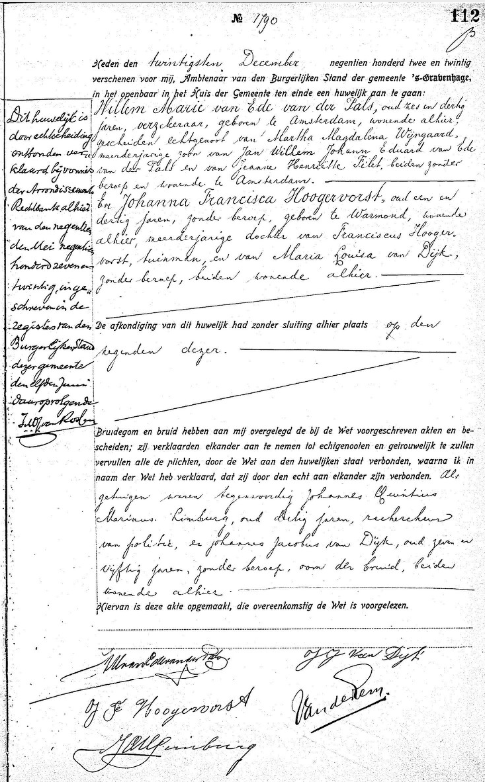 № 1790
112
Heden den twintigsten December negentien honderd twee en twintig
verschenen voor mij, Ambtenaar van den Burgerlijken Stand der gemeente 's-Gravenhage,
in het openbaar in het Huis der Gemeente ten einde een huwelijk aan te gaan:
Willem Marie van Ede van der Pals, oud zes en dertig
jaren, verzekeraar, geboren te Amsterdam, wonende alhier,
gescheiden echtgenoot van Martha Magdalena Wijngaard,
meerderjarige zoon van Jan Willem Johann Eduard van Ede
van der Pals en van Jeanne Henriette Filet, beiden zonder
beroep en wonende te Amsterdam.
En Johanna Francisca Hoogervorst, oud een en
dertig jaren, zonder beroep, geboren te Warmond, wonende
alhier, meerderjarige dochter van Franciscus Hooger-
vorst, tuinman, en van Maria Louisa van Dijk,
zonder beroep, beiden wonende alhier.
Dit huwelijk is
door echtscheiding
ontbonden ver-
klaard bij vonnis
der Arrondissements
Rechtbank alhier
van den negentien
den Mei negentien
honderd zeven en
twintig, inge-
schreven in de
registers van den
Burgerlijken Stand
dezer gemeente
den elfden Juni
daaropvolgende
De afkondiging van dit huwelijk had zonder sluiting alhier plaats op den
negenden dezer.
Bruidegom en bruid hebben aan mij overgelegd de bij de Wet voorgeschreven akten en be-
scheiden; zij verklaarden elkander aan te nemen tot echtgenooten en getrouwelijk te zullen
vervullen alle de plichten, door de Wet aan den huwelijken staat verbonden, waarna ik in
naam der Wet heb verklaard, dat zij door den echt aan elkander zijn verbonden. Als
getuigen waren tegenwoordig Johannes Quintius
Marinus Limburg, oud dertig jaren, rechercheur
van politie, en Johannes Jacobus van Dijk, oud zeven en
vijftig jaren, zonder beroep, oom der bruid, beiden
wonende alhier.
Hiervan is deze akte opgemaakt, die overeenkomstig de Wet is voorgelezen.
J J Van Dijk
J F Hoogervorst